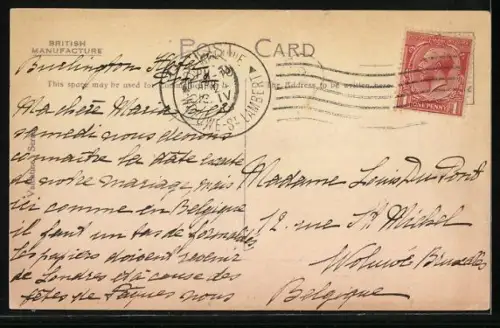 BRITISH
MANUFACTURE
POST CARD
Burlington Hotel
This space may be used for
the Address to be written here
Ma chère Maria
samedi nous devons
connaitre la date exacte
de notre mariage, mais
ici comme en Belgique
il faut un tas de formalités
les papiers doivent revenir
de Londres et à cause des
fêtes de Pâques nous
Madame Louis Du Pont
12. rue St Michel
Woluwé Bruxelles
Belgique
ST-LAMBERT
ONE PENNY